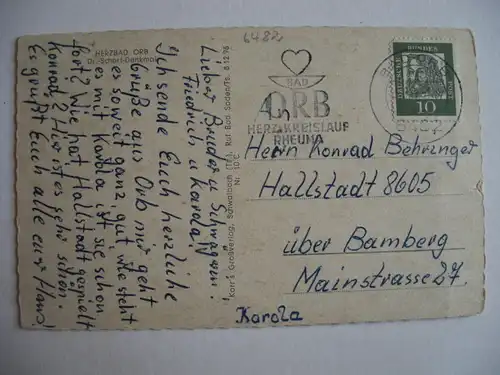 6482
HERZBAD ORB
Dr.-Scharf-Denkmal
Lieber Bruder u. Schwägerin!
Friedrich u. Karola!
Ich sende Euch herzliche
Grüße aus Orb mir geht
es soweit ganz gut wie steht
es mit Karola ist sie schon
fort? Wie hat Hallstadt gespielt
Konrad? Hier ist es sehr schön.
Es grüßt Euch alle eure
Korr's Großverlag, Schwalbach (Ts.), Ruf Bad Soden/Ts. 61296
BAD
ORB
HERZ KREISLAUF
RHEUMA
DEUTSCHE BUNDESPOST
10
An
Herrn Konrad Behringer
Hallstadt 8605
über Bamberg
Mainstrasse 27.
Karola